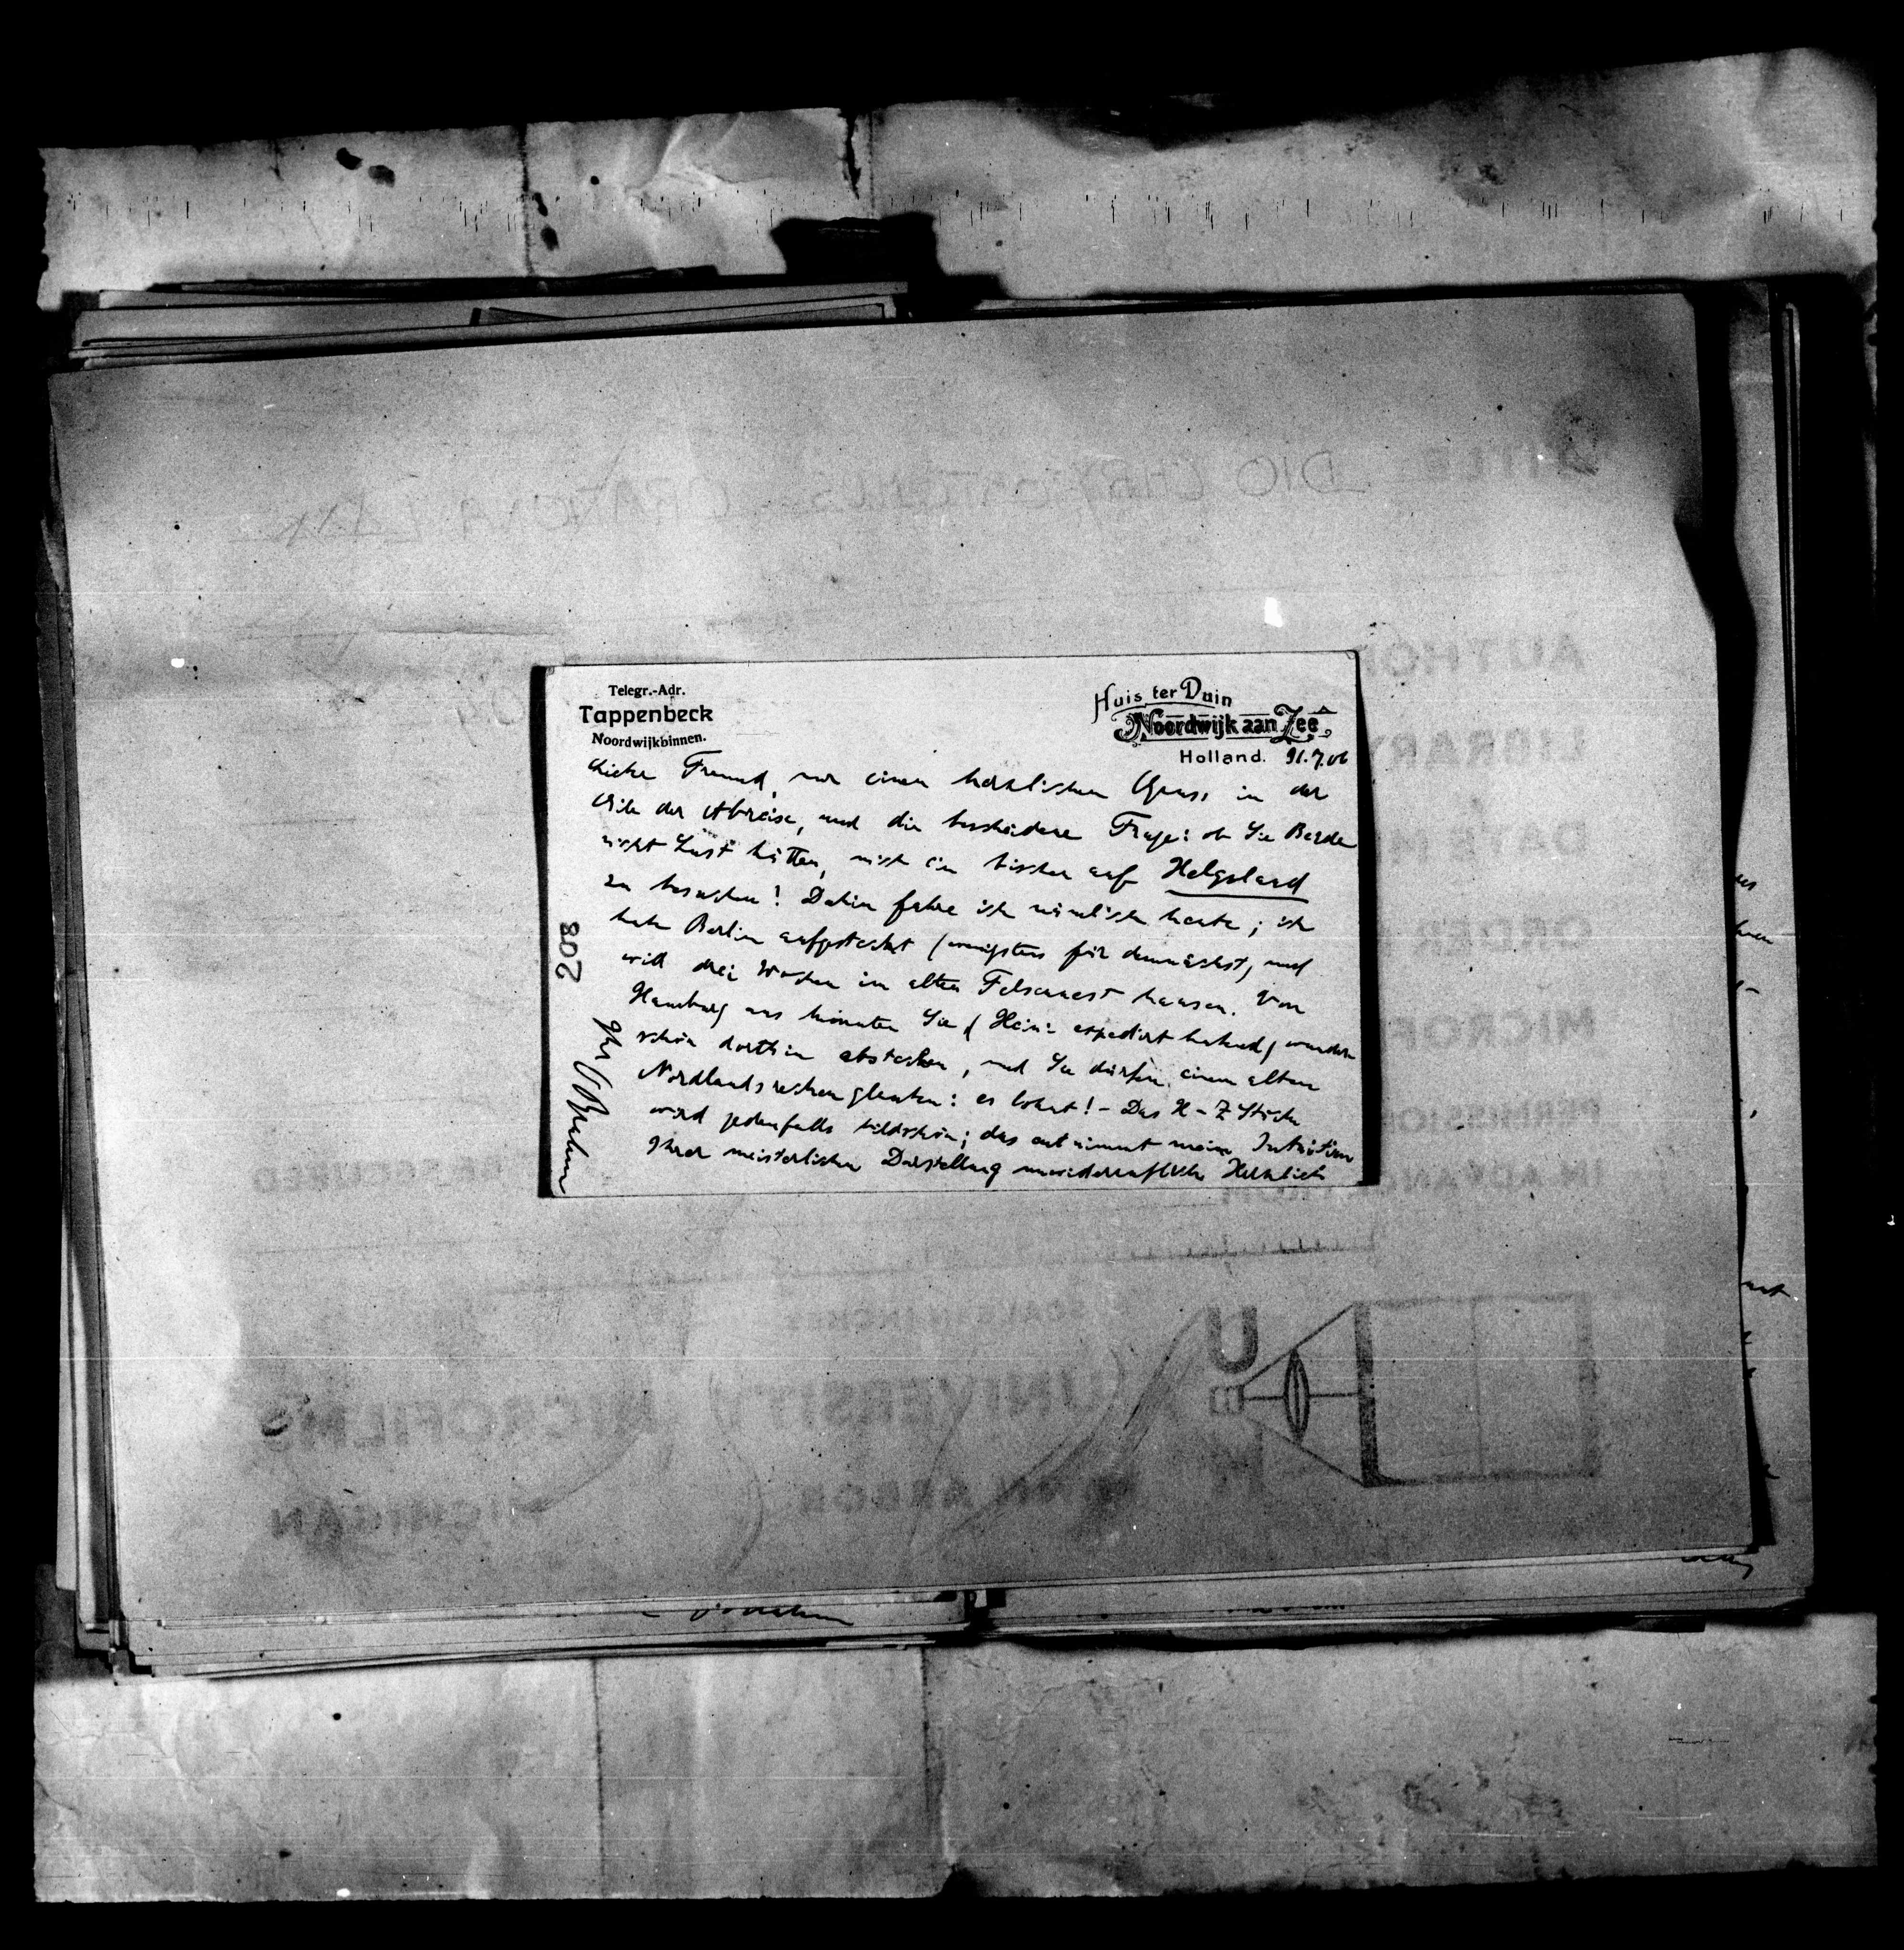 Telegr.-Adr.
Tappenbeck
Noordwijkbinnen.
Huis ter Duin
Noordwijk aan Zee
Holland.
Lieber Freund, nur einen herzlichen Gruss in der
Eile der Abreise, und die bescheidene Frage: ob Sie Beide
nicht Lust hätten, mich ein bischen auf Helgoland
zu besuchen! Dahin fahre ich nämlich heute; ich
habe Berlin aufgesteckt (wenigstens für demnächst) und
will drei Wochen im alten Felsennest hausen. Von
Hamburg aus könnten Sie (Heini expediert habend) wunder-
schön dorthin abstechen, und Sie dürfen einem alten
Nordlandsrecken glauben: es lohnt! - Das H-Z Stück
wird jedenfalls bildschön; das entnimmt meine Intuition
Ihrer meisterlichen Darstellung Herzlich
Ihr
208
DIO
AUTHOR
LIBRARY
DATE
ORDER
MICROF
PERMISSION
IN ADVANCE
BE SECURED
UNIVERSITY MICROFILMS
ANN ARBOR MICHIGAN